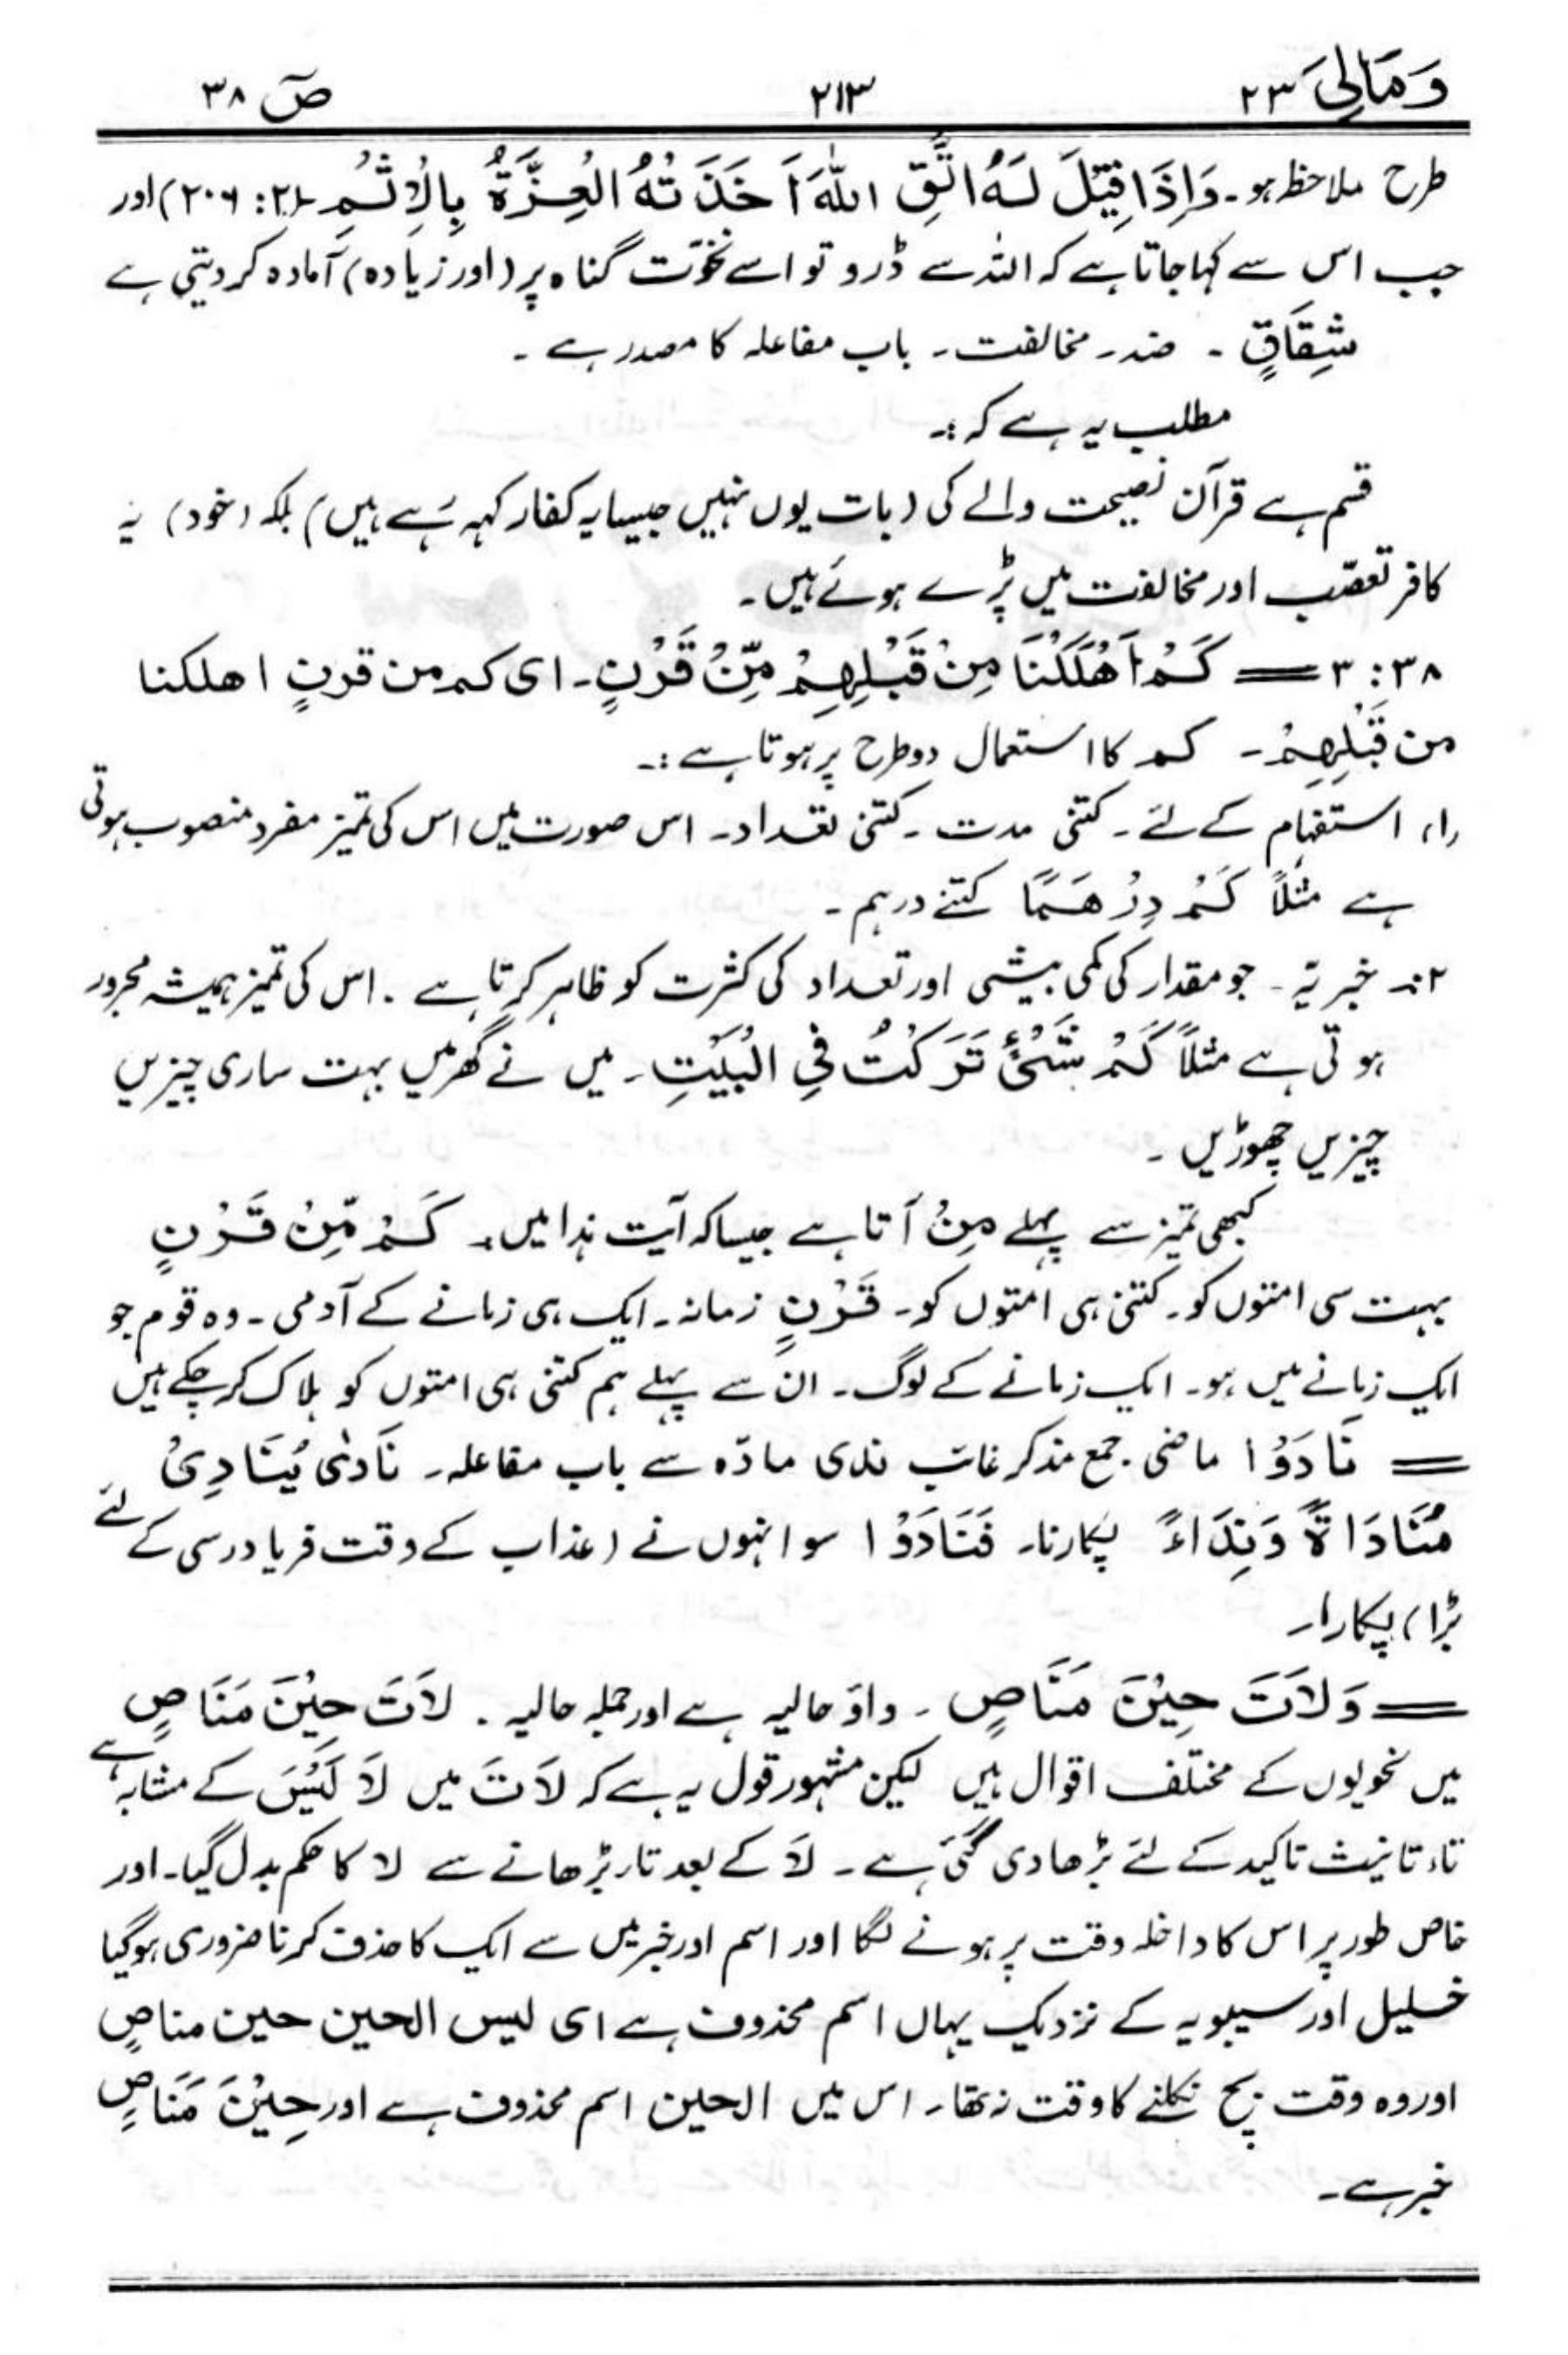 وَمَالِیَ ۲۳ ۲۱۳ صٓ ۳۸
طرح ملاحظہ ہو۔ وَاِذَا قِیْلَ لَہُ اتَّقِ اللّٰہَ اَخَذَتْہُ الْعِزَّۃُ بِالْاِثْمِ (۲: ۲۰۶) اور
جب اس سے کہا جاتا ہے کہ اللہ سے ڈرو تو اسے نخوّت گناہ پر (اور زیادہ) آمادہ کر دیتی ہے
شِقَاقٍ ۔ ضد۔ مخالفت۔ باب مفاعلہ کا مصدر ہے ۔
مطلب یہ ہے کہ :۔
قسم ہے قرآن نصیحت والے کی (بات یوں نہیں جیسا یہ کفار کہہ رہے ہیں) بلکہ (خود) یہ
کافر تعصّب اور مخالفت میں پڑے ہوئے ہیں۔
۳۸: ۳ == کَمْ اَھْلَکْنَا مِنْ قَبْلِھِمْ مِّنْ قَرْنٍ۔ ای کم من قرنٍ اھلکنا
من قَبْلِھِمْ ۔ کم کا استعمال دو طرح پر ہوتا ہے :۔
(۱) استفہام کے لئے ۔ کتنی مدت ۔ کتنی تعداد۔ اس صورت میں اس کی تمیز مفرد منصوب ہوتی
ہے مثلاً کَمْ دِرْھَمًا کتنے درہم ۔
۲:۔ خبریّہ ۔ جو مقدار کی کمی بیشی اور تعداد کی کثرت کو ظاہر کرتا ہے ۔ اس کی تمیز ہمیشہ مجرور
ہوتی ہے مثلاً کَمْ شَیْءٍ تَرَکْتُ فِی الْبَیْتِ۔ میں نے گھر میں بہت ساری چیزیں
چیزیں چھوڑیں ۔
کبھی تمیز سے پہلے مِنْ آتا ہے جیسا کہ آیت ہٰذا میں۔ کَمْ مِّنْ قَرْنٍ
بہت سی امتوں کو۔ کتنی ہی امتوں کو۔ قَرْنٍ زمانہ۔ ایک ہی زمانے کے آدمی ۔ وہ قوم جو
ایک زمانے میں ہو۔ ایک زمانے کے لوگ۔ ان سے پہلے ہم کتنی ہی امتوں کو ہلاک کر چکے ہیں
== نَادَوْا ماضی جمع مذکر غائب ندی مادّہ سے باب مفاعلہ۔ نَادٰی یُنَادِیْ
مُنَادَاۃً وَنِدَاءً پکارنا۔ فَنَادَوْا سو انہوں نے (عذاب کے وقت فریاد رسی کے لئے
بڑا) پکارا۔
== وَلَاتَ حِیْنَ مَنَاصٍ ۔ واؤ حالیہ ہے اور جملہ حالیہ ۔ لَاتَ حِیْنَ مَنَاصٍ
میں نحویوں کے مختلف اقوال ہیں لیکن مشہور قول یہ ہے کہ لَاتَ میں لَا لَیْسَ کے مشابہ ہے
تاء تانیث تاکید کے لئے بڑھا دی گئی ہے ۔ لَا کے بعد تاء بڑھانے سے لا کا حکم بدل گیا۔ اور
خاص طور پر اس کا داخلہ وقت پر ہونے لگا اور اسم اور خبر میں سے ایک کا حذف کرنا ضروری ہو گیا
خلیل اور سیبویہ کے نزدیک یہاں اسم محذوف ہے ای لیس الحین حین مناصٍ
اور وہ وقت بچ نکلنے کا وقت نہ تھا۔ اس میں الحین اسم محذوف ہے اور حِیْنَ مَنَاصٍ
خبر ہے۔